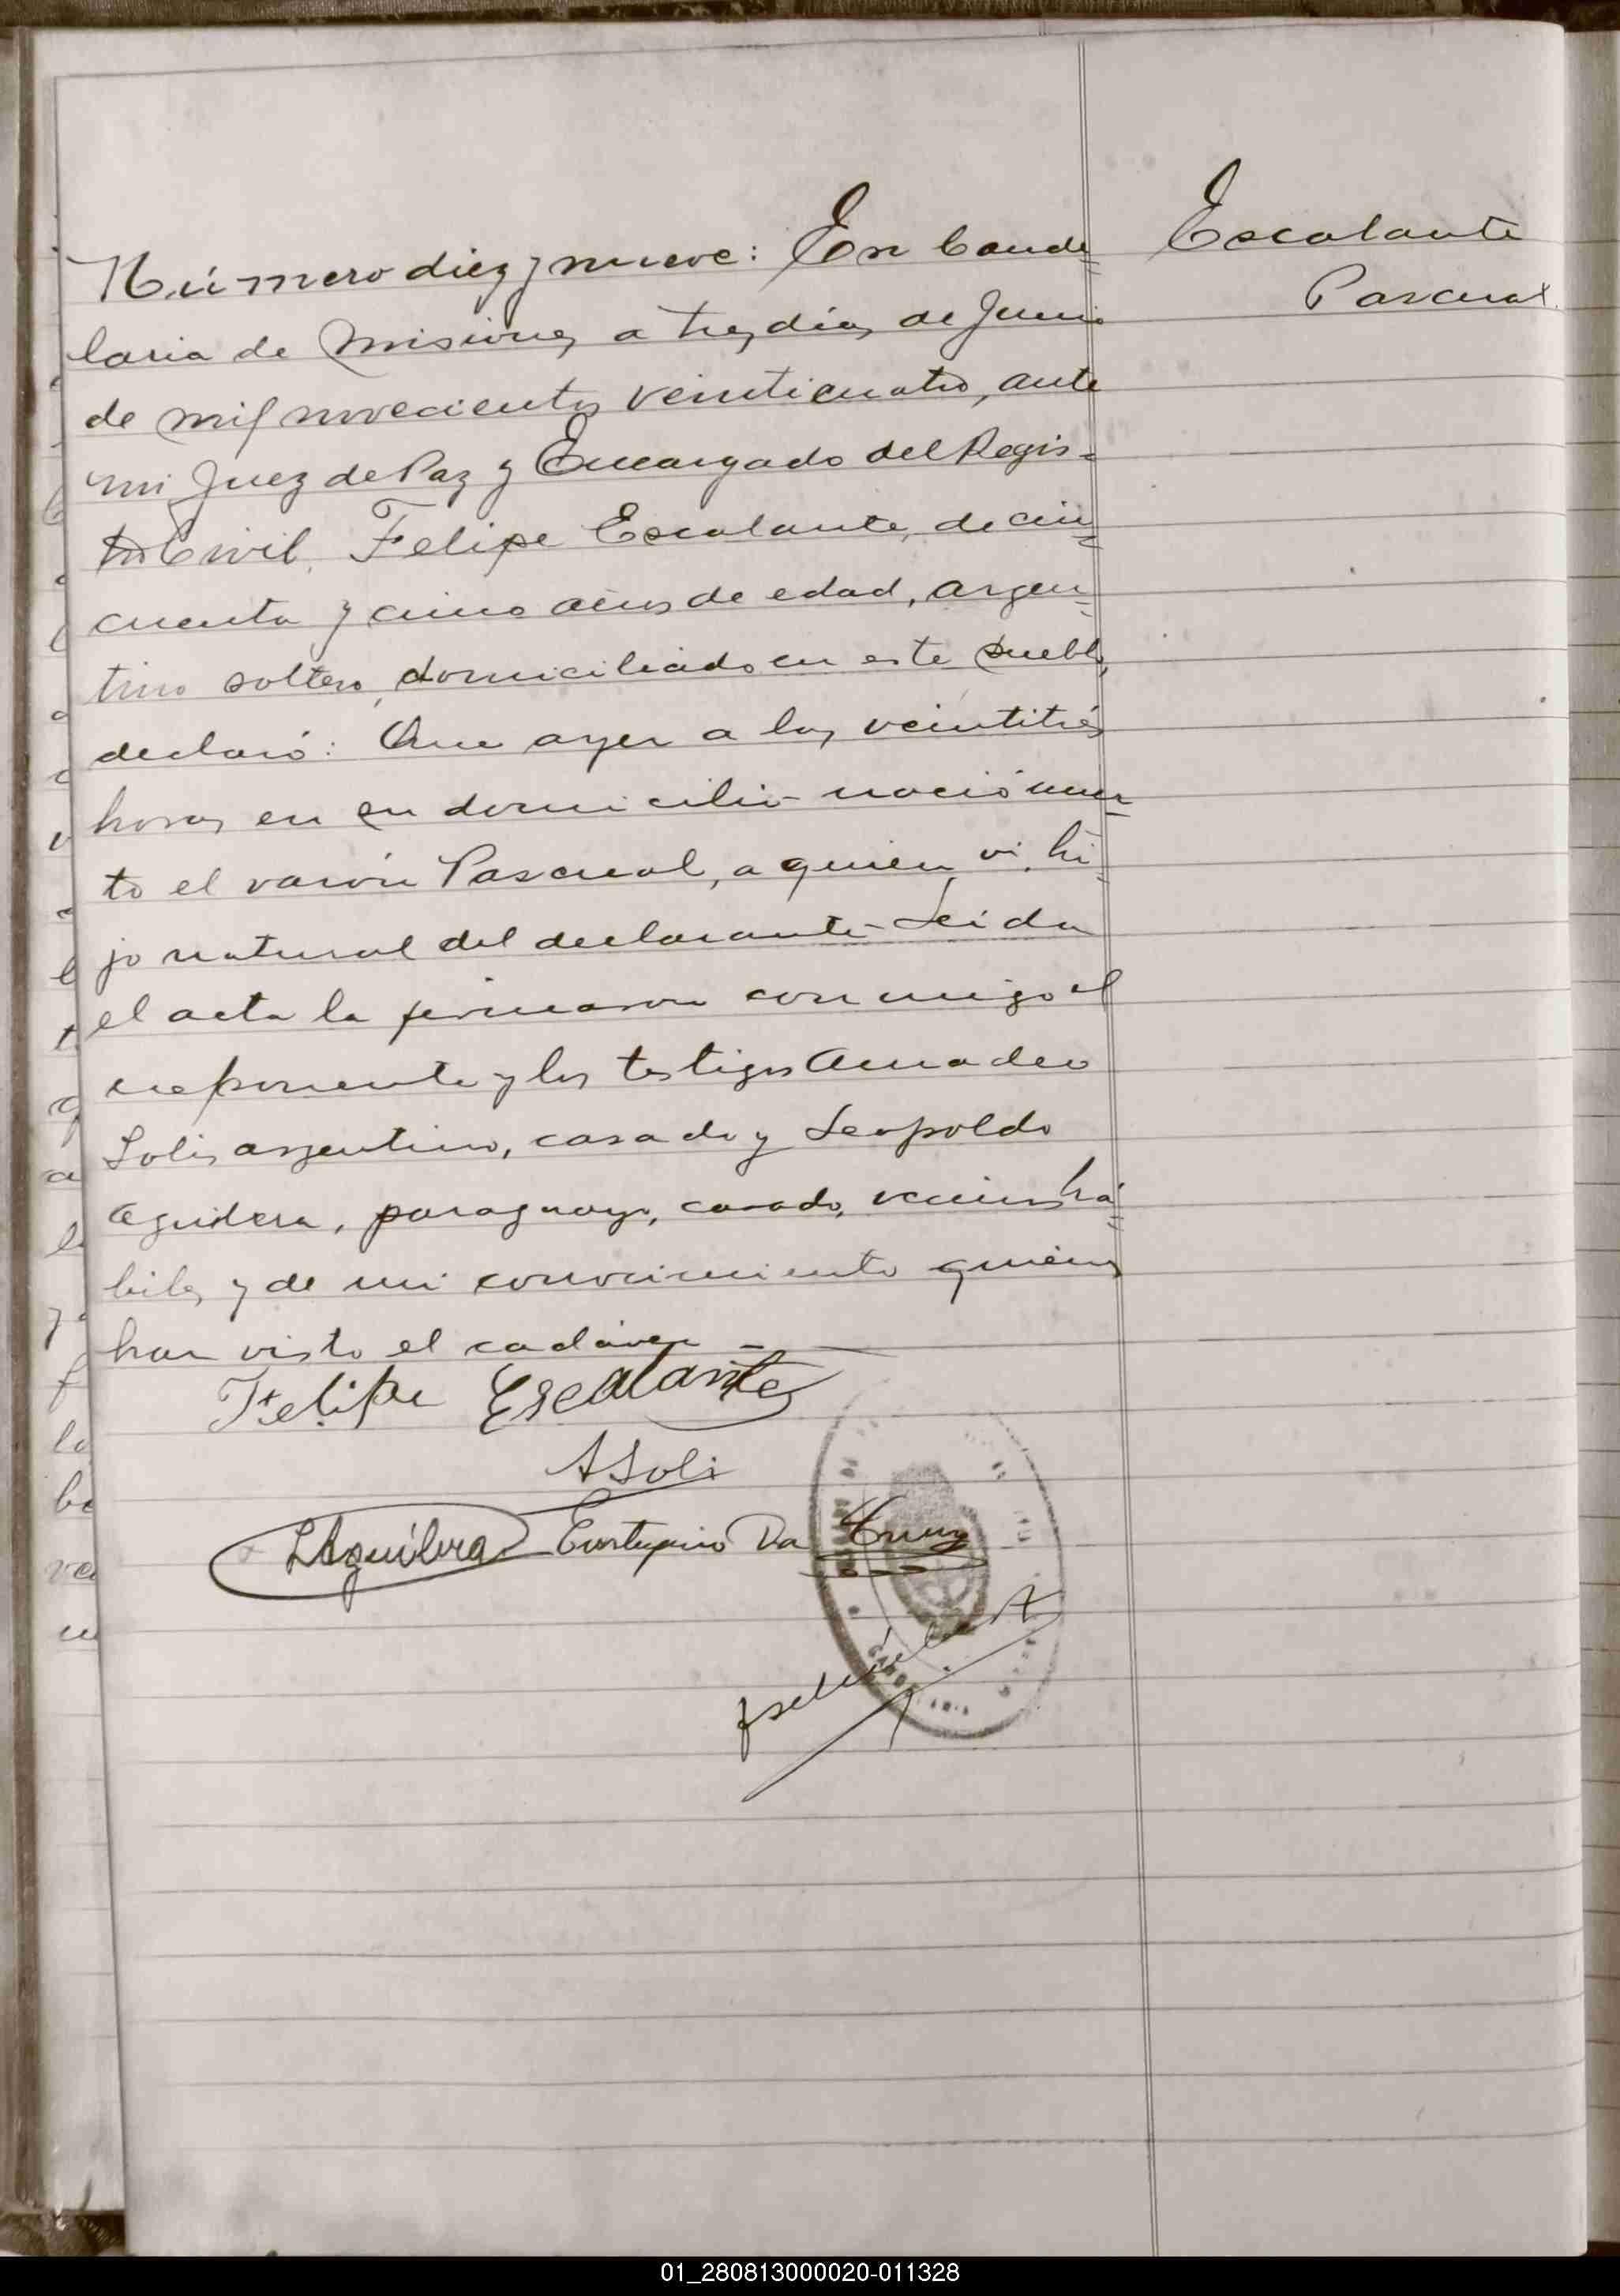 Escalante
Pascual
Número diez y nueve: En Cande=
laria de Misiones a tres días de Junio
de mil novecientos veinticuatro, ante
mi Juez de Paz y Encargado del Regis=
tro Civil, Felipe Escalante, de cin=
cuenta y cinco años de edad, argen=
tino soltero, domiciliado en este pueblo,
declaró: Que ayer a las veintitrés
horas en su domicilio nació muer=
to el varón Pascual, a quien vi, hi=
jo natural del declarante - Leida
el acta la firmaron conmigo el
exponente y los testigos Amadeo
Solis argentino, casado y Leopoldo
Aguilera, paraguayo, casado, vecinos há=
biles y de mi conocimiento quienes
han visto el cadáver -
Felipe Escalante
A Soli
LAguilera Da Cruz
01_280813000020-011328